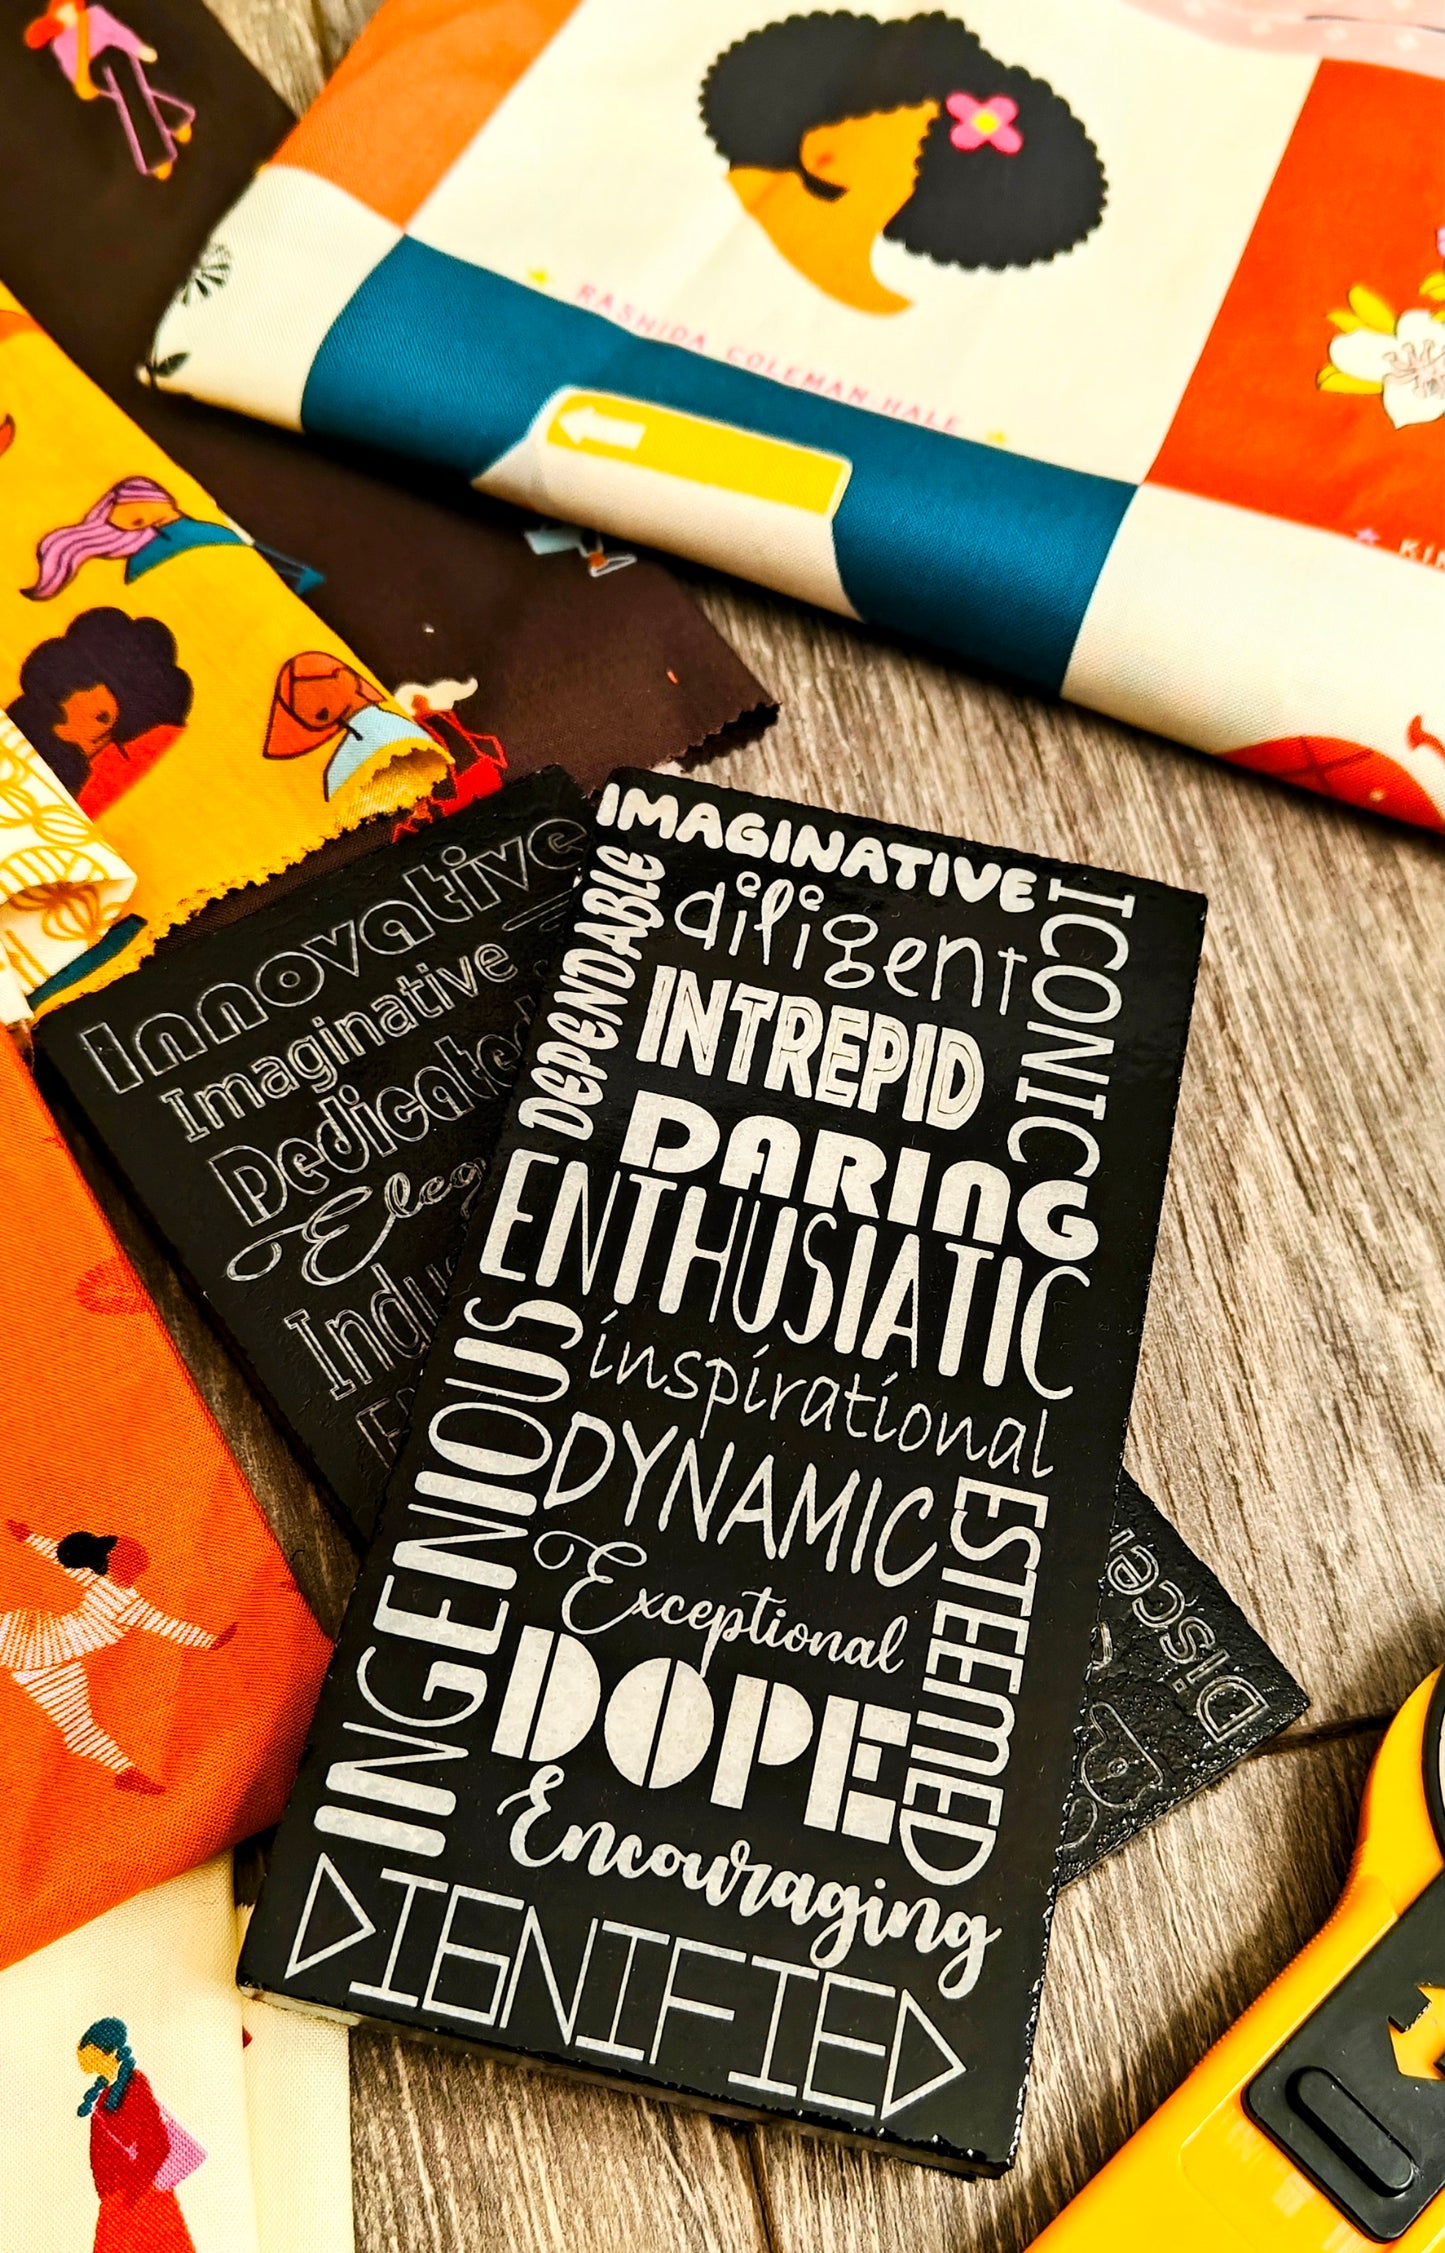 RASHIDA COLEMAN-HALE
KIR
Innovative
Imaginative
Dedicated
Eleg
Indu
IMAGINATIVE
DEPENDABLE
diligent
ICONIC
INTREPID
DARING
ENTHUSIATIC
INGENIOUS
inspirational
DYNAMIC
ESTEEMED
Exceptional
DOPE
Encouraging
DIGNIFIED
Discer